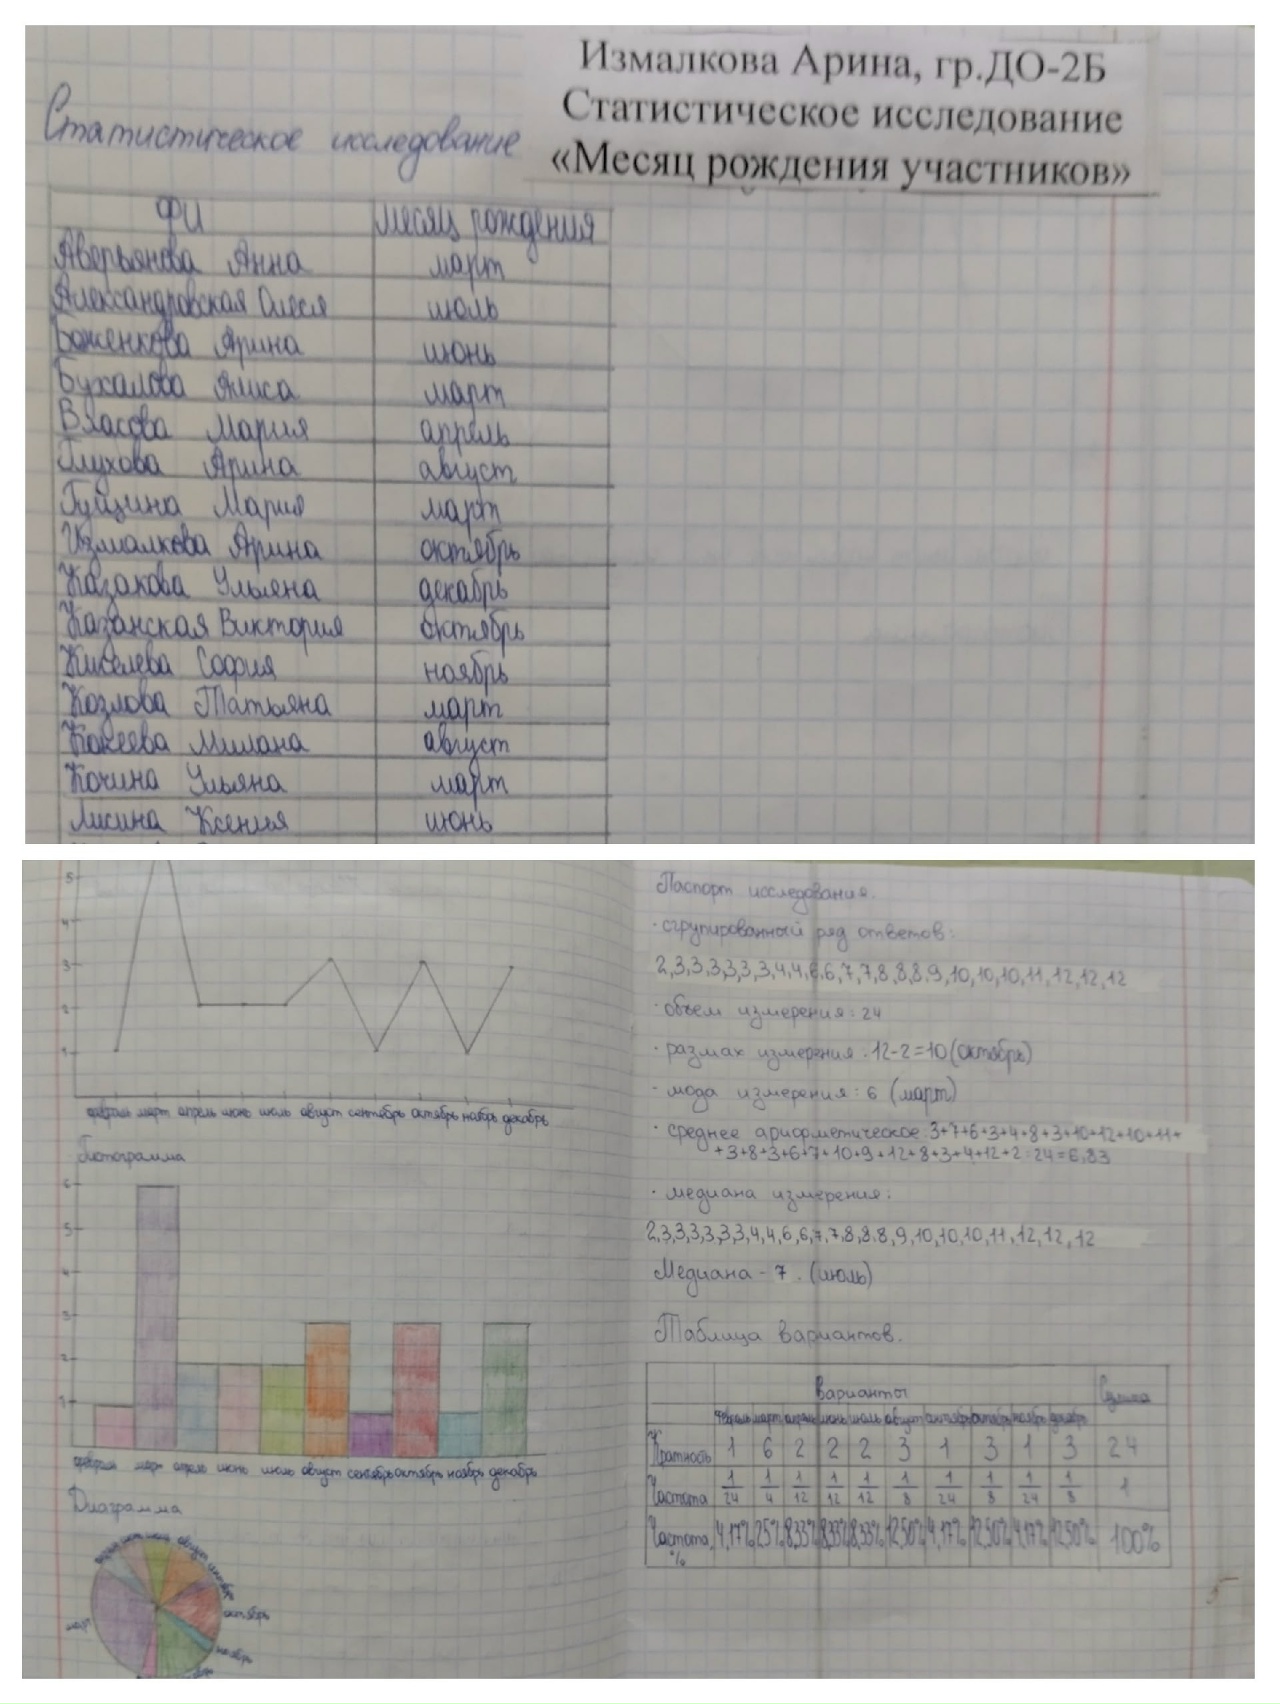 Измалкова Арина, гр.ДО-2Б
Статистическое исследование
«Месяц рождения участников»
Статистическое исследование
ФИ месяц рождения
Аверьянова Анна март
Александровская Олеся июль
Боженкова Арина июнь
Бухалова Алиса март
Власова Мария апрель
Глухова Арина август
Гущина Мария март
Измалкова Арина октябрь
Казакова Ульяна декабрь
Казанская Виктория октябрь
Киселева София ноябрь
Козлова Татьяна март
Кокеева Милана август
Кочина Ульяна март
Лисина Ксения июнь
5
4
3
2
1
февраль март апрель июнь июль август сентябрь октябрь ноябрь декабрь
Гистограмма
6
5
4
3
2
1
февраль март апрель июнь июль август сентябрь октябрь ноябрь декабрь
Диаграмма
август
октябрь
ноябрь
март
Паспорт исследования.
· сгрупированный ряд ответов:
2,3,3,3,3,3,3,4,4,6,6,7,7,8,8,8,9,10,10,10,11,12,12,12
· объем измерения: 24
· размах измерения: 12-2=10 (октябрь)
· мода измерения: 6 (март)
· среднее арифметическое: 3+7+6+3+4+8+3+10+12+10+11+
+3+8+3+6+7+10+9+12+8+3+4+12+2:24=6,83
· медиана измерения:
2,3,3,3,3,3,3,4,4,6,6,7,7,8,8,8,9,10,10,10,11,12,12,12
Медиана - 7. (июль)
Таблица вариантов.
Варианты Сумма
февраль март апрель июнь июль август октябрь ноябрь декабрь
Кратность 1 6 2 2 2 3 1 3 1 3 24
Частота 1/24 1/4 1/12 1/12 1/12 1/8 1/24 1/8 1/24 1/8 1
Частота, % 4,17% 25% 8,33% 8,33% 8,33% 12,50% 4,17% 12,50% 4,17% 12,50% 100%
5